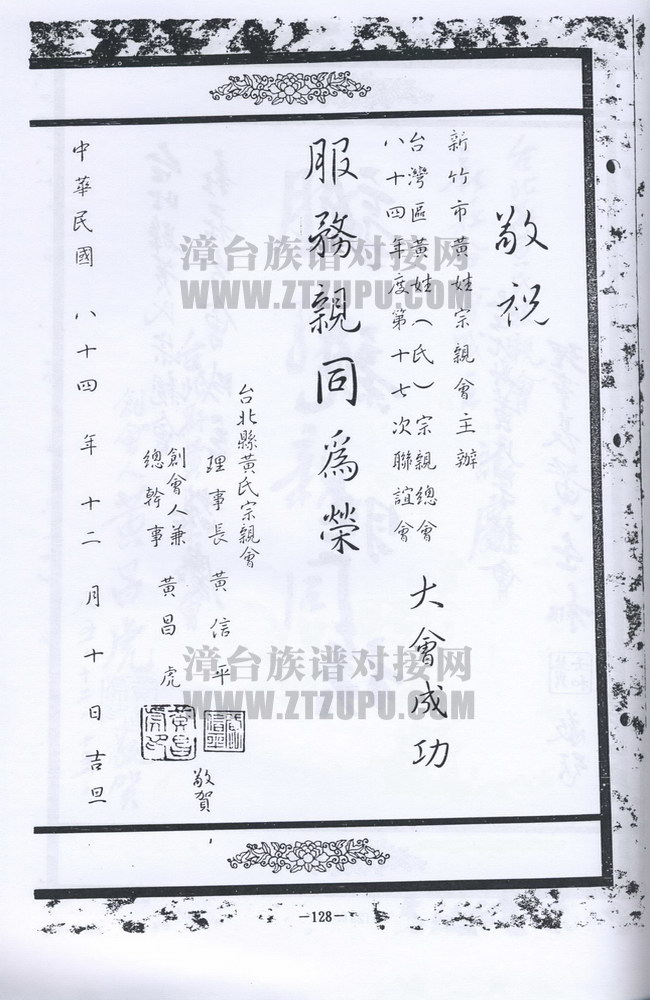 敬祝
新竹市黃姓宗親會主辦
台灣區黃姓（氏）宗親總會
八十四年度第十七次聯誼會
大會成功
服務親同為榮
台北縣黃氏宗親會
理事長 黃信平
創會人兼
總幹事 黃昌虎
敬賀
中華民國 八十四 年 十二 月 十 日 吉旦
漳台族谱对接网
WWW.ZTZUPU.COM
漳台族谱对接网
WWW.ZTZUPU.COM
-128-